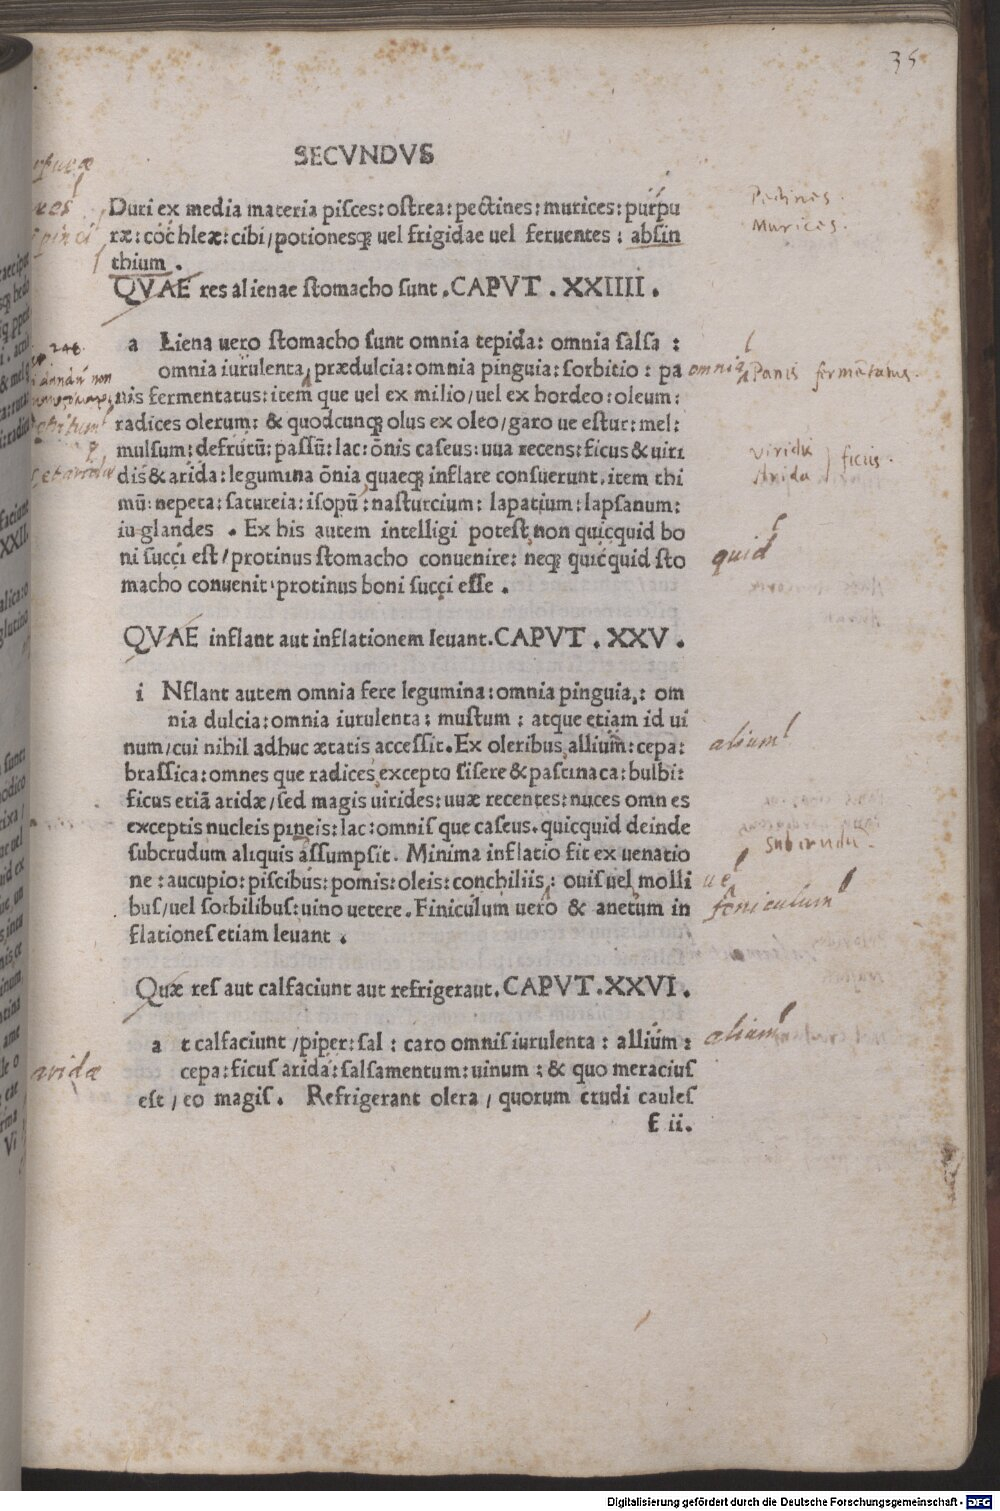 35
SECVNDVS
Duri ex media materia pisces: ostrea: pectines: murices: purpu
ræ: cochleæ: cibi/potionesqꝫ uel frigidae uel feruentes: absin
thium.
Pectines.
Murices.
QVAE res alienae stomacho sunt. CAPVT. XXIIII.
a Liena uero stomacho sunt omnia tepida: omnia salsa:
omnia iurulenta, prædulcia: omnia pinguia: sorbitio: pa
omnia
Panis fermētatus.
nis fermentatus: item que uel ex milio/uel ex hordeo: oleum:
radices olerum: & quodcunqꝫ olus ex oleo/garo ue estur: mel:
mulsum: defrutū: passū: lac: ōnis caseus: uua recens: ficus & uiri
dis & arida: legumina ōnia quaeqꝫ inflare consuerunt. item thi
viridis
Arida
ficus.
mū: nepeta: satureia: isopū: nasturcium: lapatium: lapsanum:
iuglandes. Ex his autem intelligi potest non quicquid bo
ni succi est/protinus stomacho conuenire: neqꝫ quicquid sto
quid
macho conuenit: protinus boni succi esse.
QVAE inflant aut inflationem leuant. CAPVT. XXV.
i Nflant autem omnia fere legumina: omnia pinguia: om
nia dulcia: omnia iurulenta: mustum: atque etiam id ui
num/cui nihil adhuc ætatis accessit. Ex oleribus allium: cepa:
alium
brassica: omnes que radices excepto sisere & pastinaca: bulbi:
ficus etiā aridæ/sed magis uirides: uuæ recentes: nuces omnes
exceptis nucleis pineis: lac: omnis que caseus. quicquid deinde
subcrudum aliquis assumpsit. Minima inflatio fit ex uenatio
ne: aucupio: piscibus: pomis: oleis: conchiliis: ouis uel molli
uel
bus/uel sorbilibus: uino uetere. Finiculum uero & anetum in
feniculum
flationes etiam leuant.
Quæ res aut calfaciunt aut refrigeraut. CAPVT. XXVI.
a t calfaciunt/piper: sal: caro omnis iurulenta: allium:
alium
cepa: ficus arida: salsamentum: uinum: & quo meracius
aridæ
est/eo magis. Refrigerant olera/quorum crudi caules
f ii.
Digitalisierung gefördert durch die Deutsche Forschungsgemeinschaft - DFG